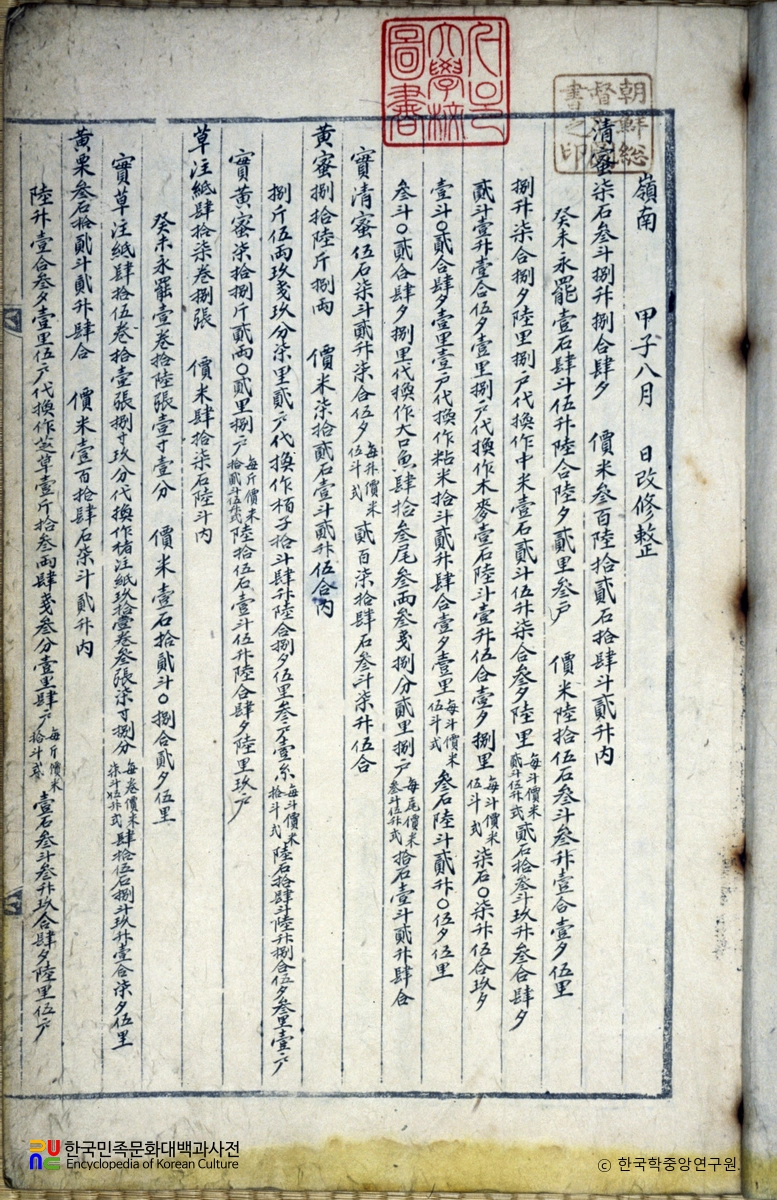 嶺南 甲子八月 日改修整
淸蜜柒石叁斗捌升捌合肆夕 價米叁百陸拾貳石拾肆斗貳升內
癸未永罷壹石肆斗伍升陸合陸夕貳里叁戶 價米陸拾伍石叁斗叁升壹合壹夕伍里
捌升柒合捌夕陸里捌戶代換作中米壹石貳斗伍升柒合叁夕陸里每斗價米貳斗伍升式貳石拾叁斗玖升叁合肆夕
貳斗壹升壹合伍夕壹里捌戶代換作木麥壹石陸斗壹升伍合壹夕捌里每斗價米伍斗式柒石〇柒升伍合玖夕
壹斗〇貳合肆夕壹里壹戶代換作粘米拾斗貳升肆合壹夕壹里每斗價米伍斗式叁石陸斗貳升〇伍夕伍里
叁斗〇貳合肆夕捌里代換作大口魚肆拾叁尾叁兩叁戔捌分貳里捌戶每尾價米叁斗伍升式拾石壹斗貳升肆合
實淸蜜伍石柒斗貳升柒合伍夕每升價米伍斗式貳百柒拾肆石叁斗柒升伍合
黃蜜捌拾陸斤捌兩 價米柒拾貳石壹斗貳升伍合內
捌斤伍兩玖戔玖分柒里貳戶代換作栢子拾斗肆升陸合捌夕伍里叁戶壹糸每斗價米拾斗式陸石拾肆斗陸升捌合伍夕叁里壹戶
實黃蜜柒拾捌斤貳兩〇貳里捌戶每斤價米拾貳斗伍升式陸拾伍石壹斗伍升陸合肆夕陸里玖戶
草注紙肆拾柒卷捌張 價米肆拾柒石陸斗內
癸未永罷壹卷拾陸張壹寸壹分 價米壹石拾貳斗〇捌合貳夕伍里
實草注紙肆拾伍卷拾壹張捌寸玖分代換作楮注紙玖拾壹卷叁張柒寸捌分每卷價米柒斗伍升式肆拾伍石捌斗玖升壹合柒夕伍里
黃栗叁石拾貳斗貳升肆合 價米壹百拾肆石柒斗貳升內
陸升壹合叁夕壹里伍戶代換作芝草壹斤拾叁兩肆戔叁分壹里肆戶每斤價米拾斗式壹石叁斗叁升玖合肆夕陸里伍戶
朝鮮總督府圖書之印
大學校圖書
한국민족문화대백과사전
Encyclopedia of Korean Culture
ⓒ 한국학중앙연구원.